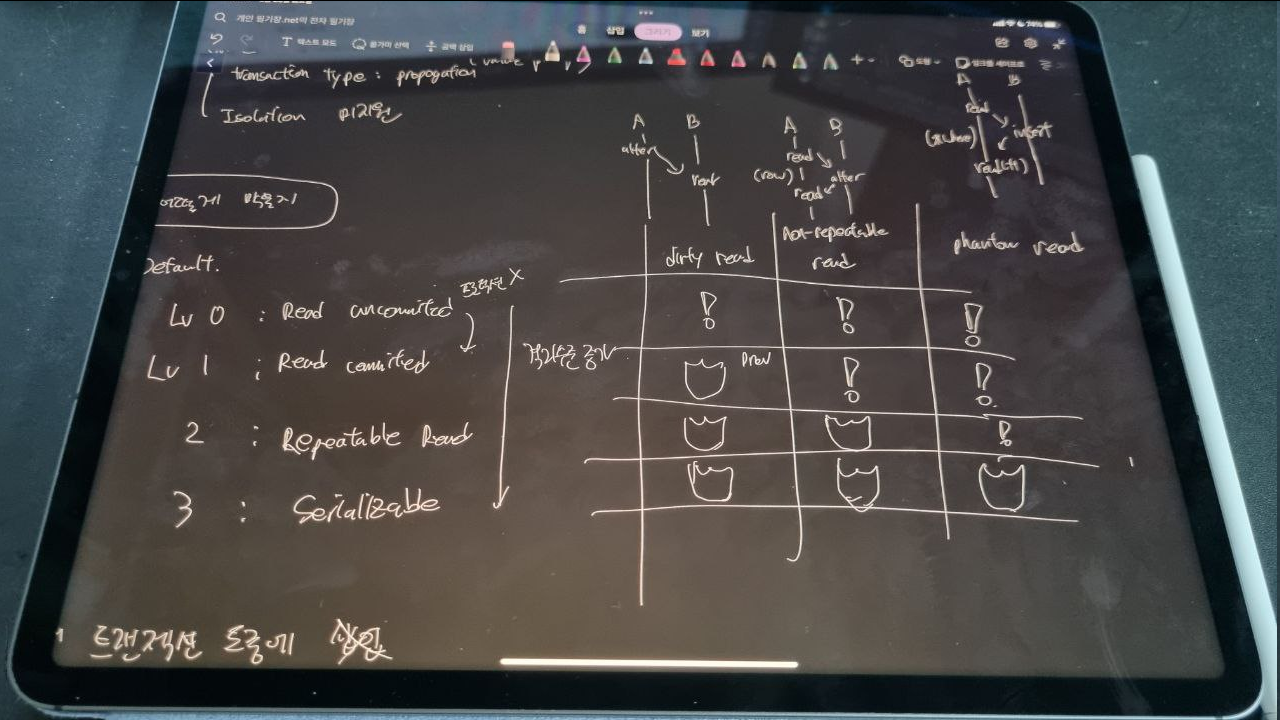 개인 필기장.net의 전자 필기장
홈 삽입 그리기 보기
텍스트 모드 올가미 선택 공백 삽입
transaction type : propogation
Isolation 미지원
A B
alter
read
A B
read
(row) alter
read
A B
read
insert
read(+1)
어떻게 막을지
Default.
Lv 0 : Read uncommited
Lv 1 : Read commited
2 : Repeatable Read
3 : Serializable
트랜잭션 X
격리수준 증가
dirty read
Non-repeatable
read
phantom read
! ! !
Prev ! !
!
트랜젝션 도중에